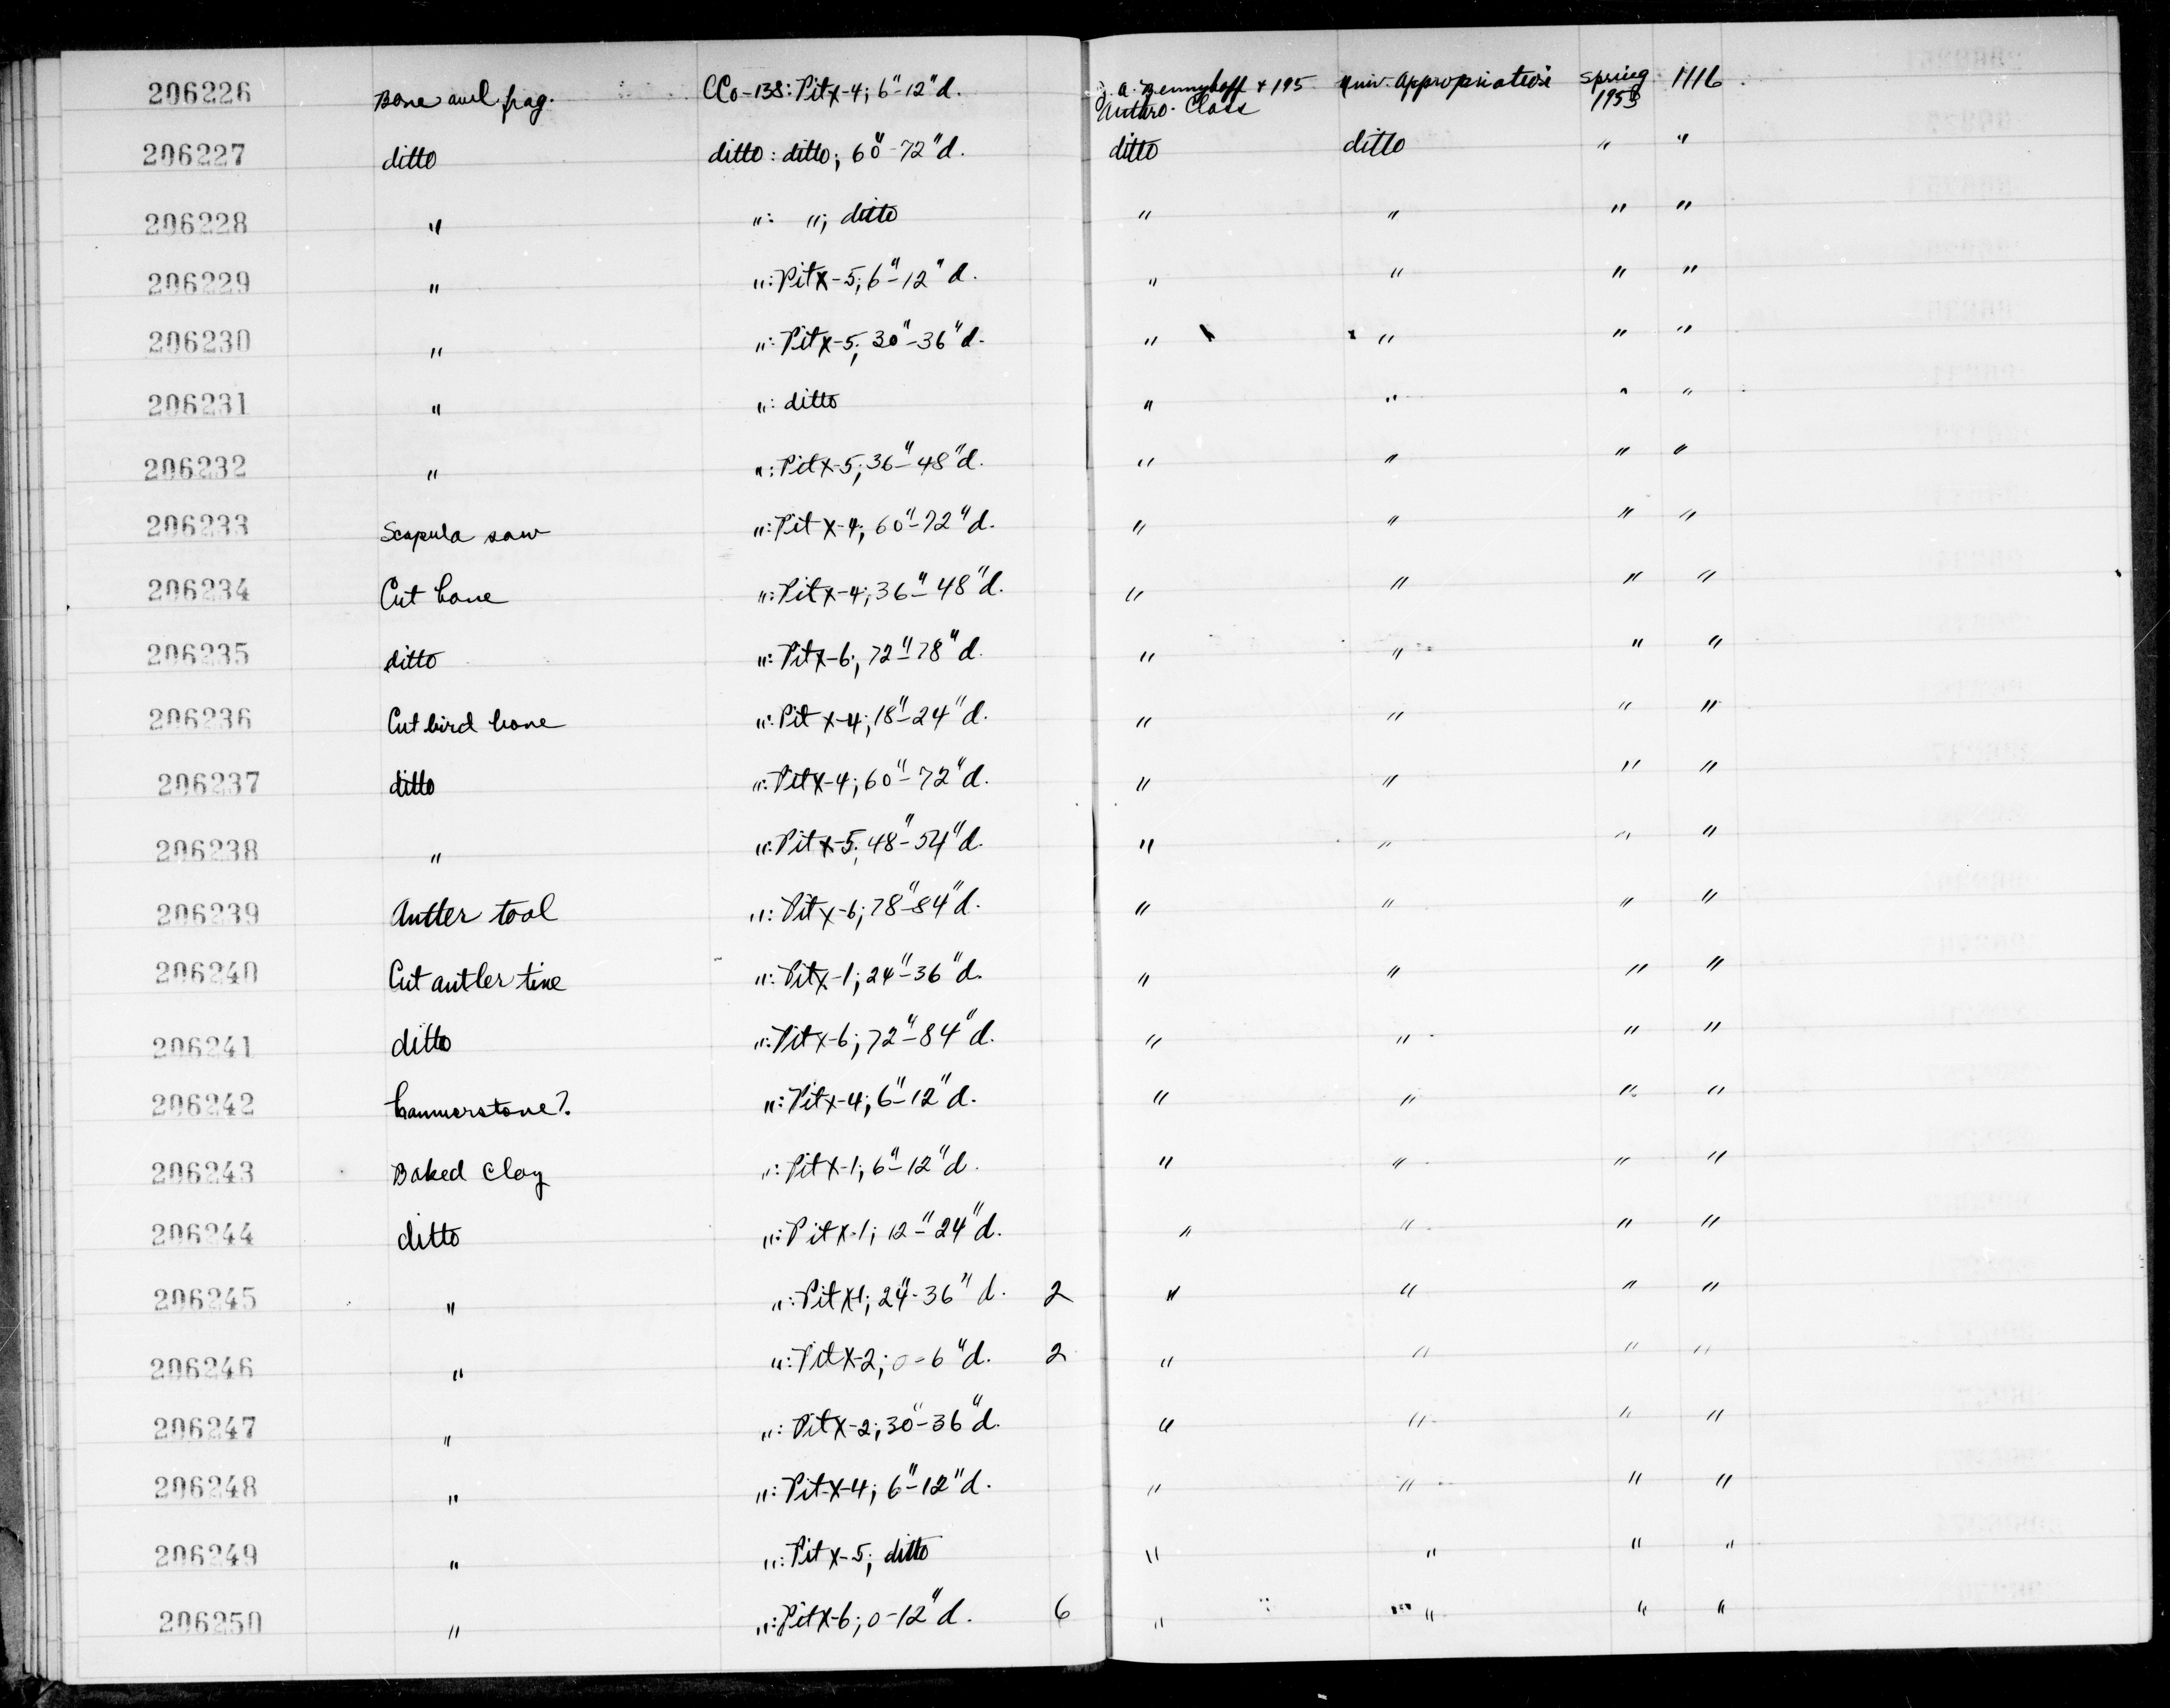 206226 Bone awl frag. CCo-138: Pit X-4; 6"-12"d. J. A. Bennyhoff + 195 Univ. Appropriation Spring 1116
Anthro. Class 1953
206227 ditto ditto: ditto; 60"-72"d. ditto ditto " "
206228 " ": "; ditto " " " "
206229 " ": Pit X-5; 6"-12"d. " " " "
206230 " ": Pit X-5; 30"-36"d. " " " "
206231 " ": ditto " " " "
206232 " ": Pit X-5; 36"-48"d. " " " "
206233 Scapula saw ": Pit X-4; 60"-72"d. " " " "
206234 Cut bone ": Pit X-4; 36"-48"d. " " " "
206235 ditto ": Pit X-6; 72"-78"d. " " " "
206236 Cut bird bone ": Pit X-4; 18"-24"d. " " " "
206237 ditto ": Pit X-4; 60"-72"d. " " " "
206238 " ": Pit X-5; 48"-54"d. " " " "
206239 Antler tool ": Pit X-6; 78"-84"d. " " " "
206240 Cut antler tine ": Pit X-1; 24"-36"d. " " " "
206241 ditto ": Pit X-6; 72"-84"d. " " " "
206242 hammerstone? ": Pit X-4; 6"-12"d. " " " "
206243 Baked Clay ": Pit X-1; 6"-12"d. " " " "
206244 ditto ": Pit X-1; 12-"24"d. " " " "
206245 " ": Pit X-1; 24"-36"d. 2 " " " "
206246 " ": Pit X-2; 0-6"d. 2 " " " "
206247 " ": Pit X-2; 30"-36"d. " " " "
206248 " ": Pit X-4; 6"-12"d. " " " "
206249 " ": Pit X-5; ditto " " " "
206250 " ": Pit X-6; 0-12"d. 6 " " " "